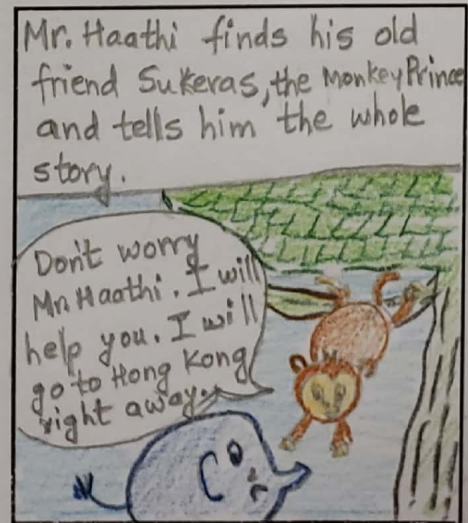 Mr. Haathi finds his old
friend Sukeras, the Monkey Prince
and tells him the whole
story.
Don't worry
Mr. Haathi. I will
help you. I will
go to Hong Kong
right away.